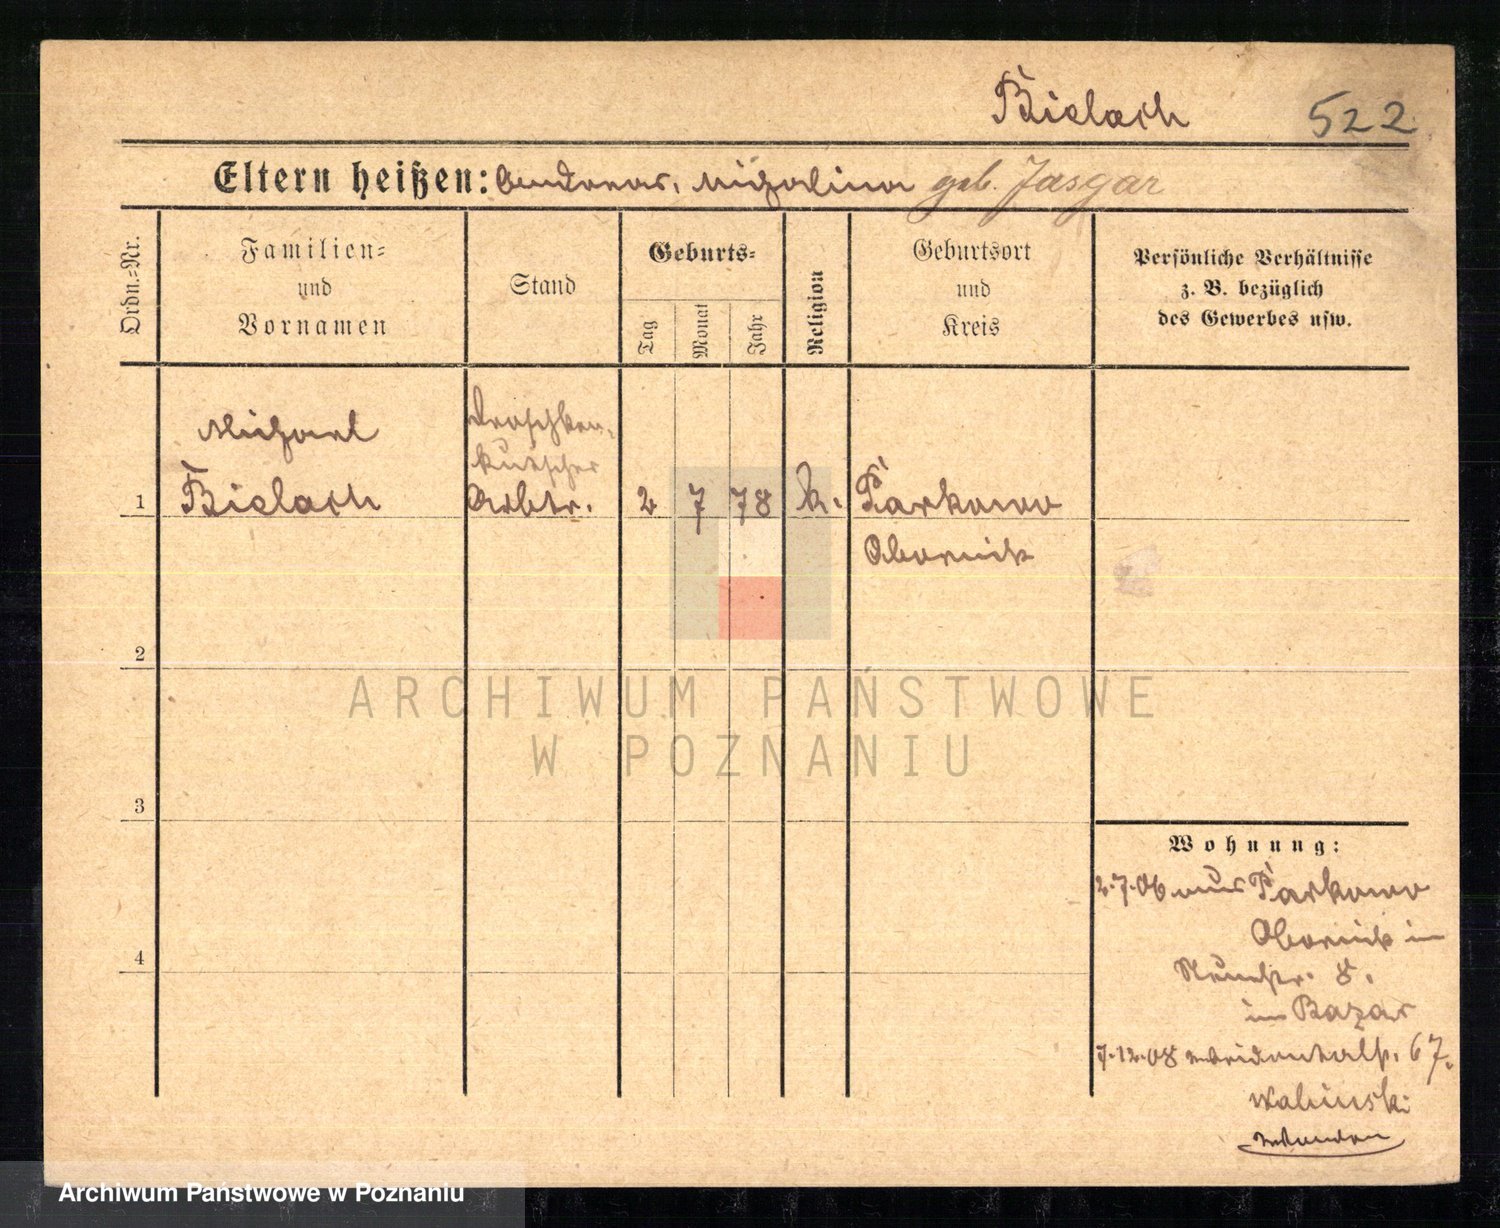 Bielach
522
Eltern heißen: Andreas, Michalina geb. Jasgar
Ordn.-Nr.
Familien-
und
Vornamen
Stand
Geburts-
Tag
Monat
Jahr
Religion
Geburtsort
und
Kreis
Persönliche Verhältnisse
z. B. bezüglich
des Gewerbes usw.
Michael
Droschken-
kutscher
1 Bielach Arbtr. 2 7 78 k. Parkowo
Obornik
2
ARCHIWUM PAŃSTWOWE
W POZNANIU
3
Wohnung:
2.7.06 aus Parkowo
Obornik in
8.
im Bazar
4
7.12.08 67.
Walinski
Archiwum Państwowe w Poznaniu